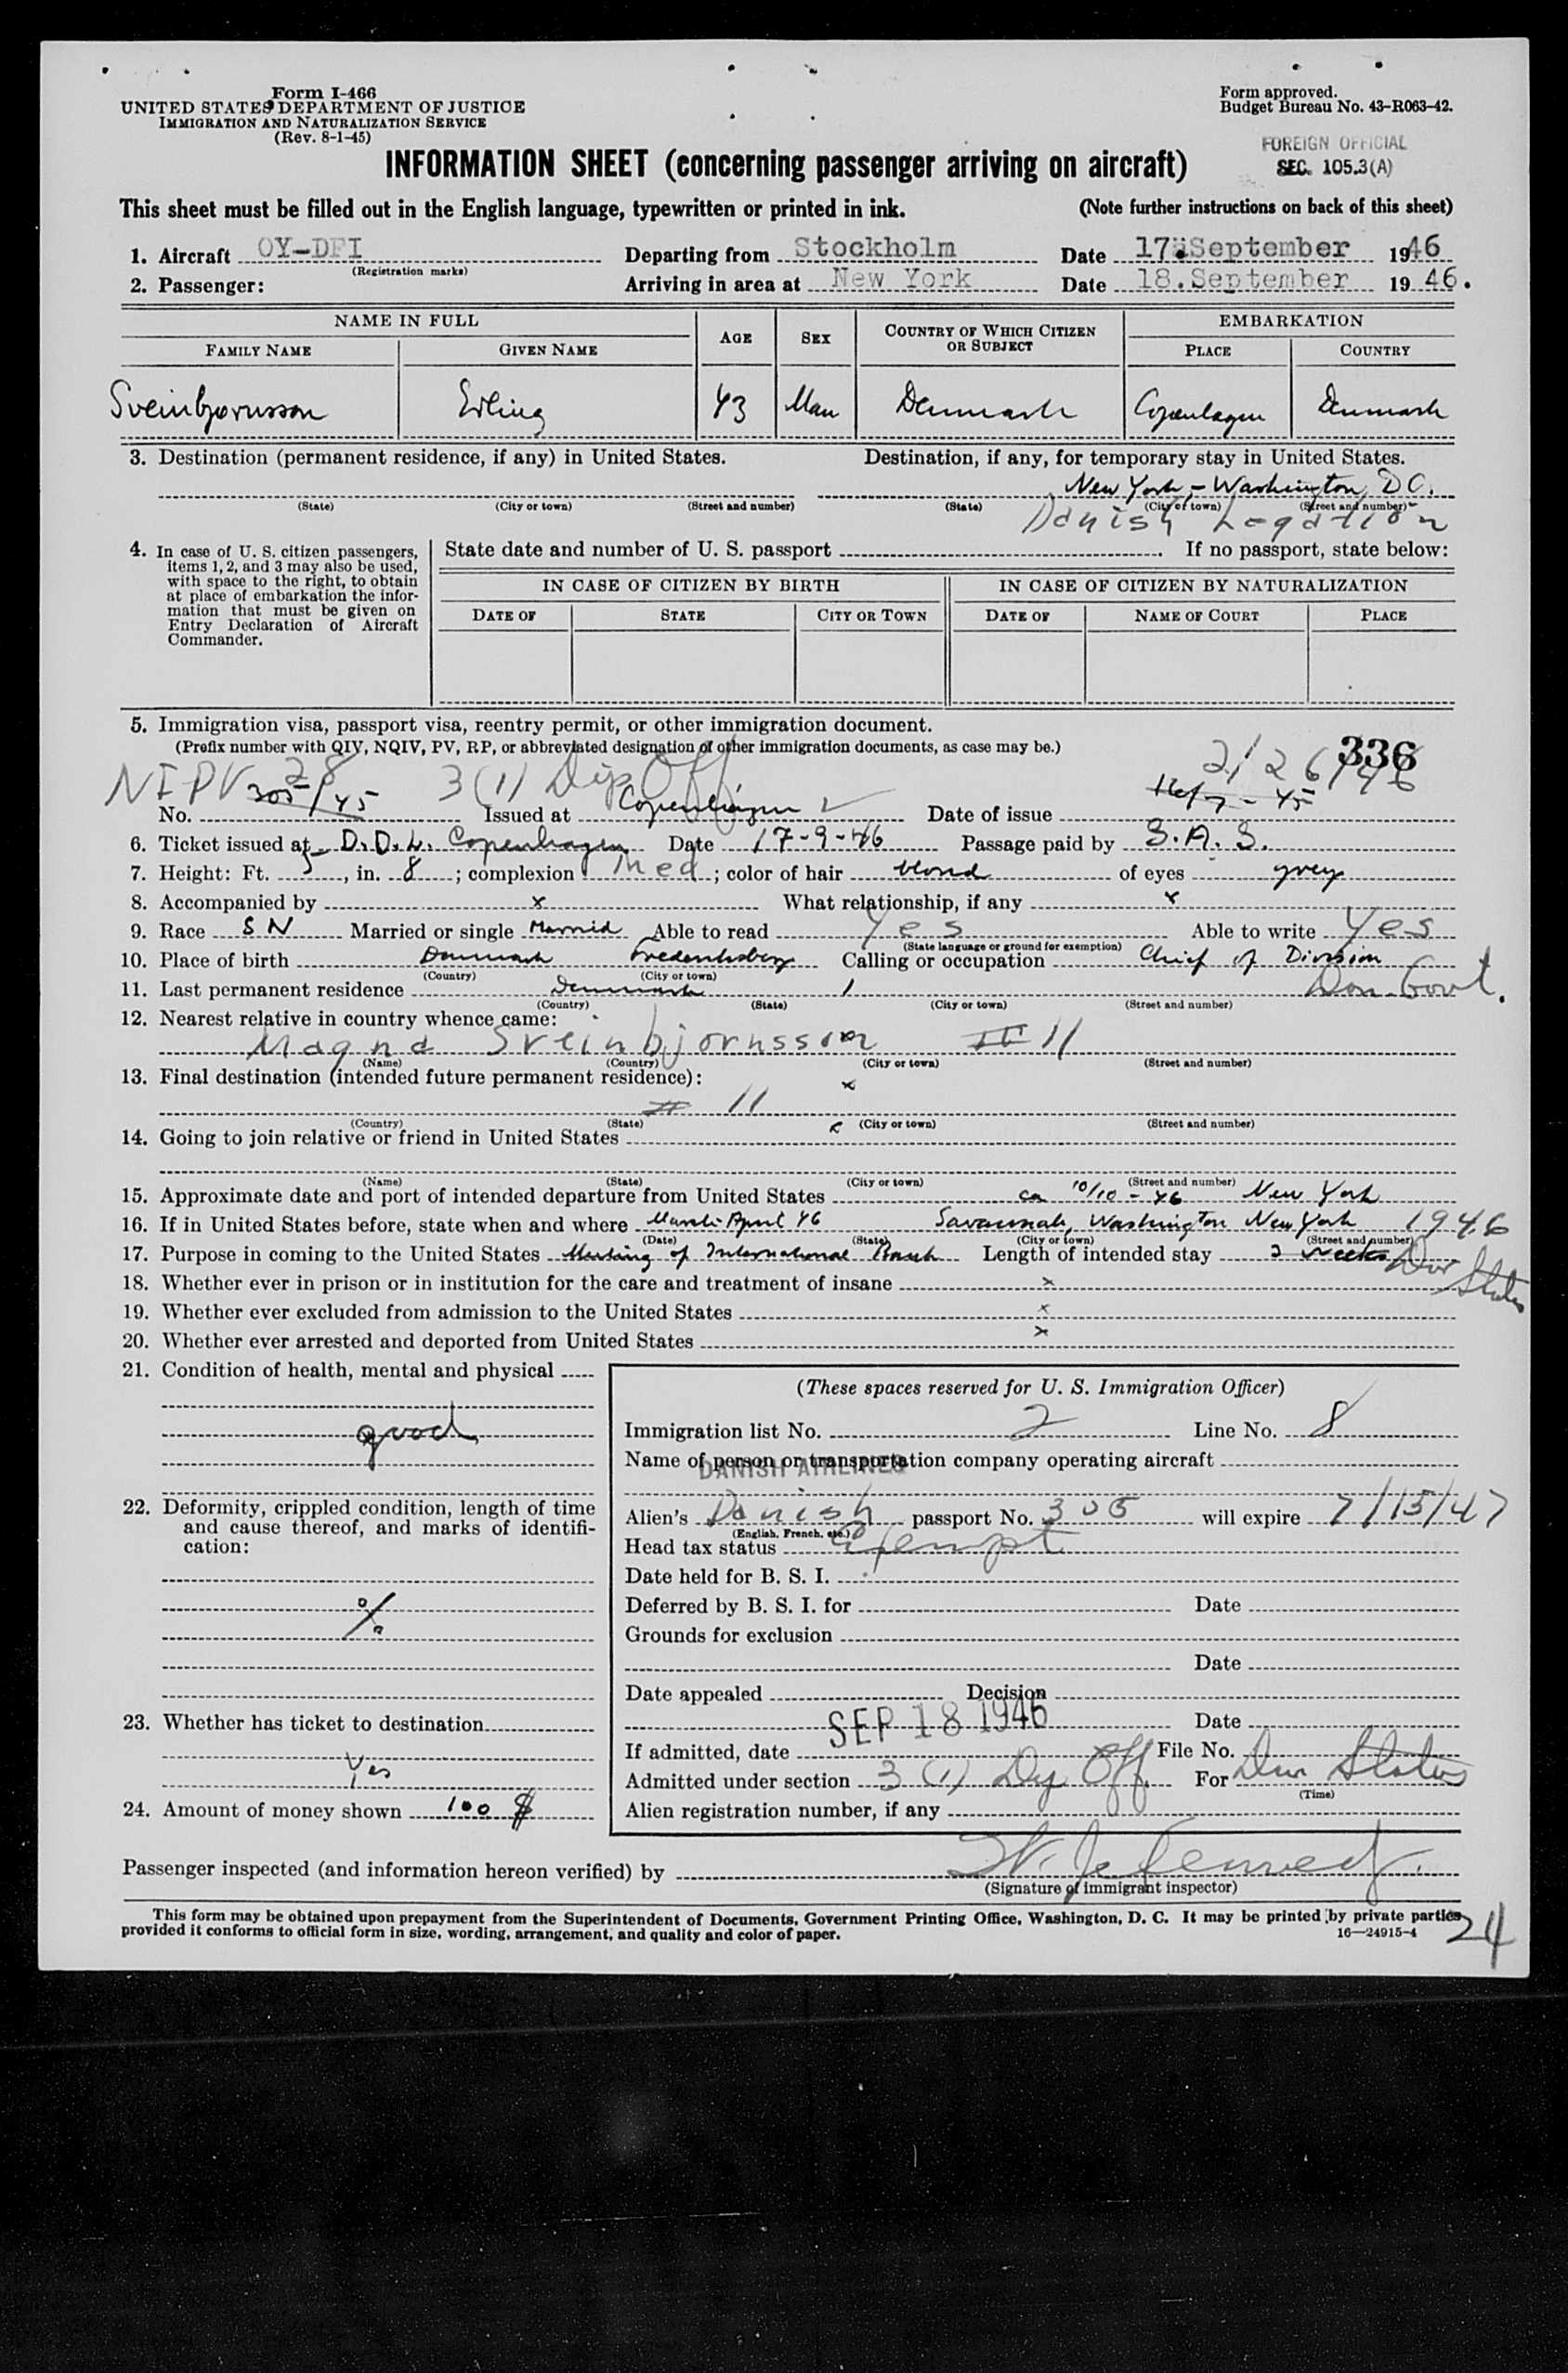 Form I-466
UNITED STATES DEPARTMENT OF JUSTICE
IMMIGRATION AND NATURALIZATION SERVICE
(Rev. 8-1-45)
Form approved.
Budget Bureau No. 43-R063-42.
FOREIGN OFFICIAL
SEC. 105.3(A)
INFORMATION SHEET (concerning passenger arriving on aircraft)
This sheet must be filled out in the English language, typewritten or printed in ink. (Note further instructions on back of this sheet)
1. Aircraft OY-DFI Departing from Stockholm Date 17.September 1946
(Registration marks)
2. Passenger: Arriving in area at New York Date 18.September 19 46.
NAME IN FULL AGE SEX COUNTRY OF WHICH CITIZEN OR SUBJECT EMBARKATION
FAMILY NAME GIVEN NAME PLACE COUNTRY
Sveinbjørnsson Erling 43 Man Denmark Copenhagen Denmark
3. Destination (permanent residence, if any) in United States. Destination, if any, for temporary stay in United States.
New York, - Washington, D.C.
(State) (City or town) (Street and number) (State) (City or town) (Street and number)
Danish Legation
4. In case of U. S. citizen passengers, items 1, 2, and 3 may also be used, with space to the right, to obtain at place of embarkation the information that must be given on Entry Declaration of Aircraft Commander.
State date and number of U. S. passport . If no passport, state below:
IN CASE OF CITIZEN BY BIRTH IN CASE OF CITIZEN BY NATURALIZATION
DATE OF STATE CITY OR TOWN DATE OF NAME OF COURT PLACE
5. Immigration visa, passport visa, reentry permit, or other immigration document.
(Prefix number with QIV, NQIV, PV, RP, or abbreviated designation of other immigration documents, as case may be.)
336
NIPV 28 3(1) Dip Off 2/26/46
No. 305/45 Issued at Copenhagen Date of issue 16/7-45
6. Ticket issued at D.D.L. Copenhagen Date 17-9-46 Passage paid by S.A.S.
7. Height: Ft. 5, in. 8; complexion Med; color of hair blond of eyes grey
8. Accompanied by x What relationship, if any x
9. Race SN Married or single Married Able to read Yes Able to write Yes
(State language or ground for exemption)
10. Place of birth Denmark Frederiksberg Calling or occupation Chief of Division
(Country) (City or town)
Dan. Govt.
11. Last permanent residence Denmark
(Country) (State) (City or town) (Street and number)
12. Nearest relative in country whence came:
Magna Sveinbjornsson # 11
(Name) (Country) (City or town) (Street and number)
13. Final destination (intended future permanent residence): x
# 11
(Country) (State) (City or town) (Street and number)
14. Going to join relative or friend in United States x
(Name) (State) (City or town) (Street and number)
15. Approximate date and port of intended departure from United States ca 10/10-46 New York
16. If in United States before, state when and where March-April 46 Savannah, Washington New York 1946
(Date) (State) (City or town) (Street and number)
17. Purpose in coming to the United States Meeting of International Bank Length of intended stay 3 weeks Dur Status
18. Whether ever in prison or in institution for the care and treatment of insane x
19. Whether ever excluded from admission to the United States x
20. Whether ever arrested and deported from United States x
21. Condition of health, mental and physical
good
22. Deformity, crippled condition, length of time and cause thereof, and marks of identification:
%
23. Whether has ticket to destination
Yes
24. Amount of money shown 100 $
(These spaces reserved for U. S. Immigration Officer)
Immigration list No. 2 Line No. 8
Name of person or transportation company operating aircraft
DANISH AIRLINES
Alien's Danish passport No. 305 will expire 7/15/47
(English, French, etc.)
Head tax status Exempt
Date held for B. S. I.
Deferred by B. S. I. for Date
Grounds for exclusion
Date
Date appealed Decision
Date
If admitted, date SEP 18 1946 File No.
Admitted under section 3(1) Dip Off. For Dur Status
(Time)
Alien registration number, if any
Passenger inspected (and information hereon verified) by W. J. Kennedy.
(Signature of immigrant inspector)
This form may be obtained upon prepayment from the Superintendent of Documents, Government Printing Office, Washington, D. C. It may be printed by private parties
provided it conforms to official form in size, wording, arrangement, and quality and color of paper. 16—24915-4
24